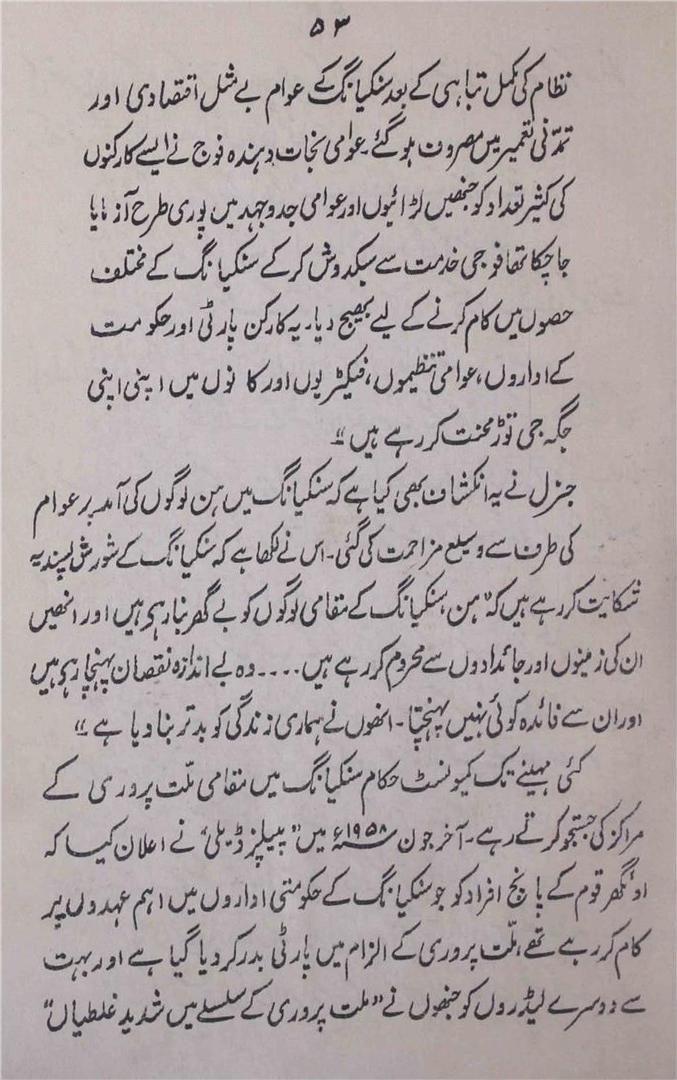 ۵۳
نظام کی مکمل تباہی کے بعد سنکیانگ کے عوام بے مثل اقتصادی اور
تمدّنی تعمیر میں مصروف ہو گئے۔ عوامی نجات دہندہ فوج نے ایسے کارکنوں
کی کثیر تعداد کو جنھیں لڑائیوں اور عوامی جدوجہد میں پوری طرح آزمایا
جا چکا تھا فوجی خدمت سے سبکدوش کرکے سنکیانگ کے مختلف
حصوں میں کام کرنے کے لیے بھیج دیا۔ یہ کارکن پارٹی اور حکومت
کے اداروں، عوامی تنظیموں، فیکٹریوں اور کانوں میں اپنی اپنی
جگہ جی توڑ محنت کر رہے ہیں"۔
جنرل نے یہ انکشاف بھی کیا ہے کہ سنکیانگ میں ہن لوگوں کی آمد پر عوام
کی طرف سے وسیع مزاحمت کی گئی۔ اس نے لکھا ہے کہ سنکیانگ کے شورش پسند یہ
شکایت کر رہے ہیں کہ "ہن، سنکیانگ کے مقامی لوگوں کو بے گھر بنا رہے ہیں اور انھیں
ان کی زمینوں اور جائدادوں سے محروم کر رہے ہیں .... وہ بے اندازہ نقصان پہنچا رہے ہیں
اور ان سے فائدہ کوئی نہیں پہنچتا۔ انھوں نے ہماری زندگی کو بدتر بنا دیا ہے"۔
کئی مہینے تک کمیونسٹ حکام سنکیانگ میں مقامی ملّت پروری کے
مراکز کی جستجو کرتے رہے۔ آخر جون ۱۹۵۸ء میں "پیپلز ڈیلی" نے اعلان کیا کہ
اوئگھر قوم کے پانچ افراد کو جو سنکیانگ کے حکومتی اداروں میں اہم عہدوں پر
کام کر رہے تھے، ملّت پروری کے الزام میں پارٹی بدر کر دیا گیا ہے اور بہت
سے دوسرے لیڈروں کو جنھوں نے "ملت پروری کے سلسلے میں شدید غلطیاں"